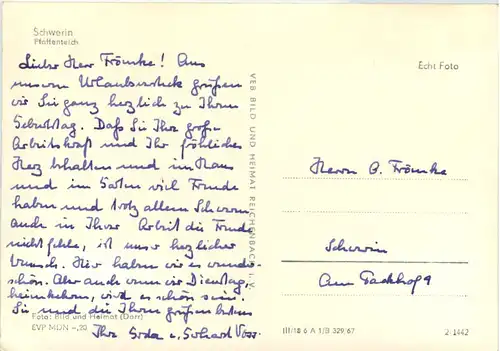 Schwerin
Pfaffenteich
Lieber Herr Frömke! Aus
unserm Urlaubs grüßen
wir Sie ganz herzlich zu Ihrem
Geburtstag. Daß Sie Ihre große
Arbeitskraft und Ihr fröhliches
Herz behalten und im Haus
und im Garten viel Freude
haben und trotz allem Schweren
auch in Ihrer Arbeit die Freude
nicht fehle, ist unser herzlicher
Wunsch. Hier haben wir es wunder-
schön. Aber auch wenn wir Dienstag
heimkehren, wird es schön sein.
Sie und die Ihren grüßen
Foto: Bild und Heimat (Darr)
EVP MDN -,20
Ihre u. Gerhard Voss
VEB BILD UND HEIMAT REICHENBACH I. V.
Echt Foto
Herrn G. Frömke
Schwerin
Am Packhof 9
III/18 6 A 1/B 329/67
2-1442